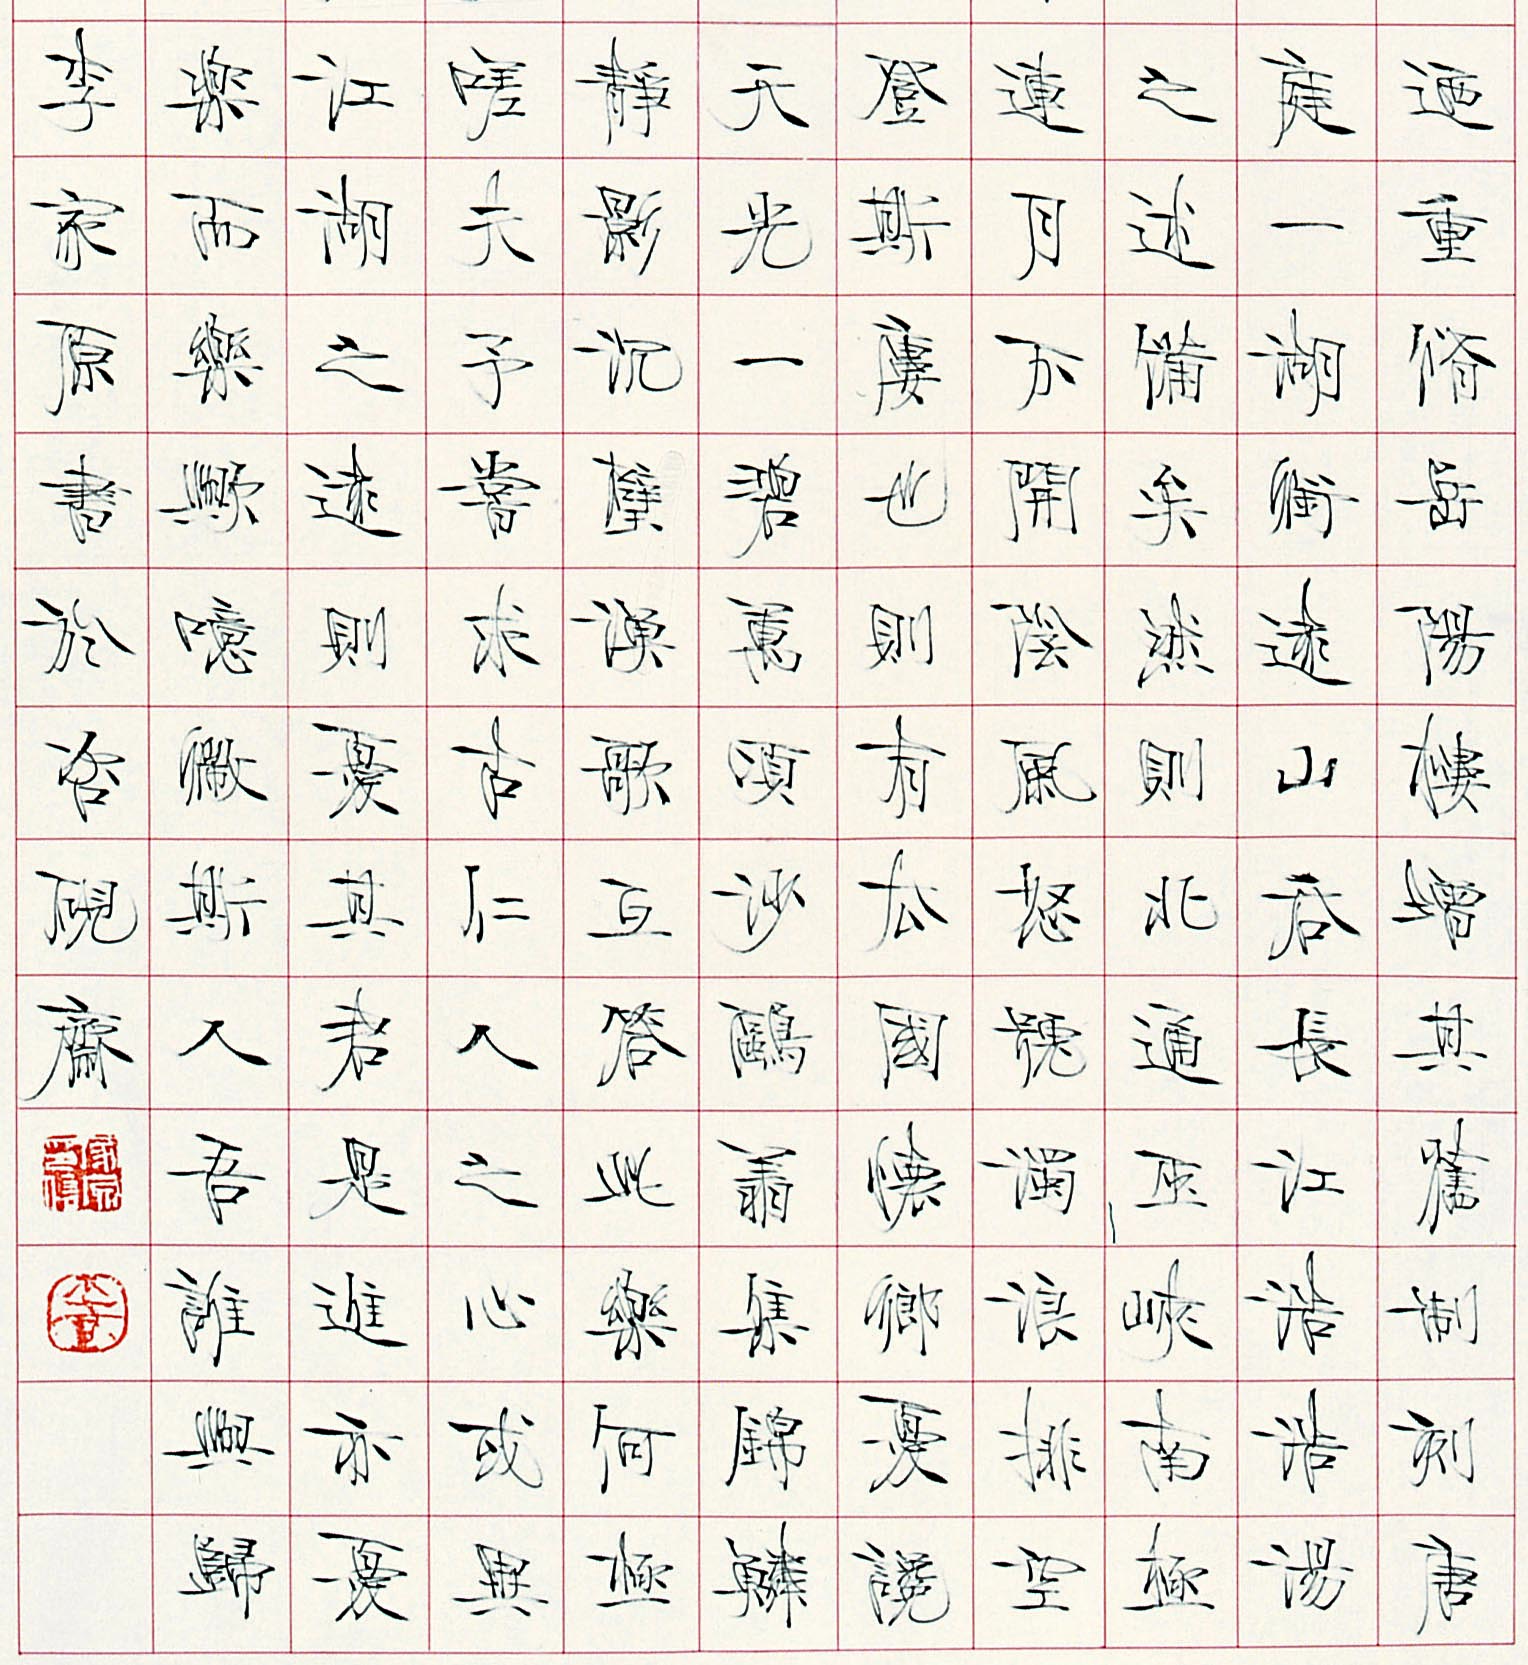 迺重脩岳陽樓增其舊制刻唐
庭一湖銜遠山吞長江浩浩湯
之述備矣然則北通巫峽南極
連月不開陰風怒號濁浪排空
登斯廔也則有去國懷鄉憂讒
天光一碧萬頃沙鷗翔集錦鱗
靜影沉璧漁歌互答此樂何極
嗟夫予嘗求古仁人之心或異
江湖之遠則憂其君是進亦憂
樂而樂歟噫微斯人吾誰與歸
李家原書於硯齋